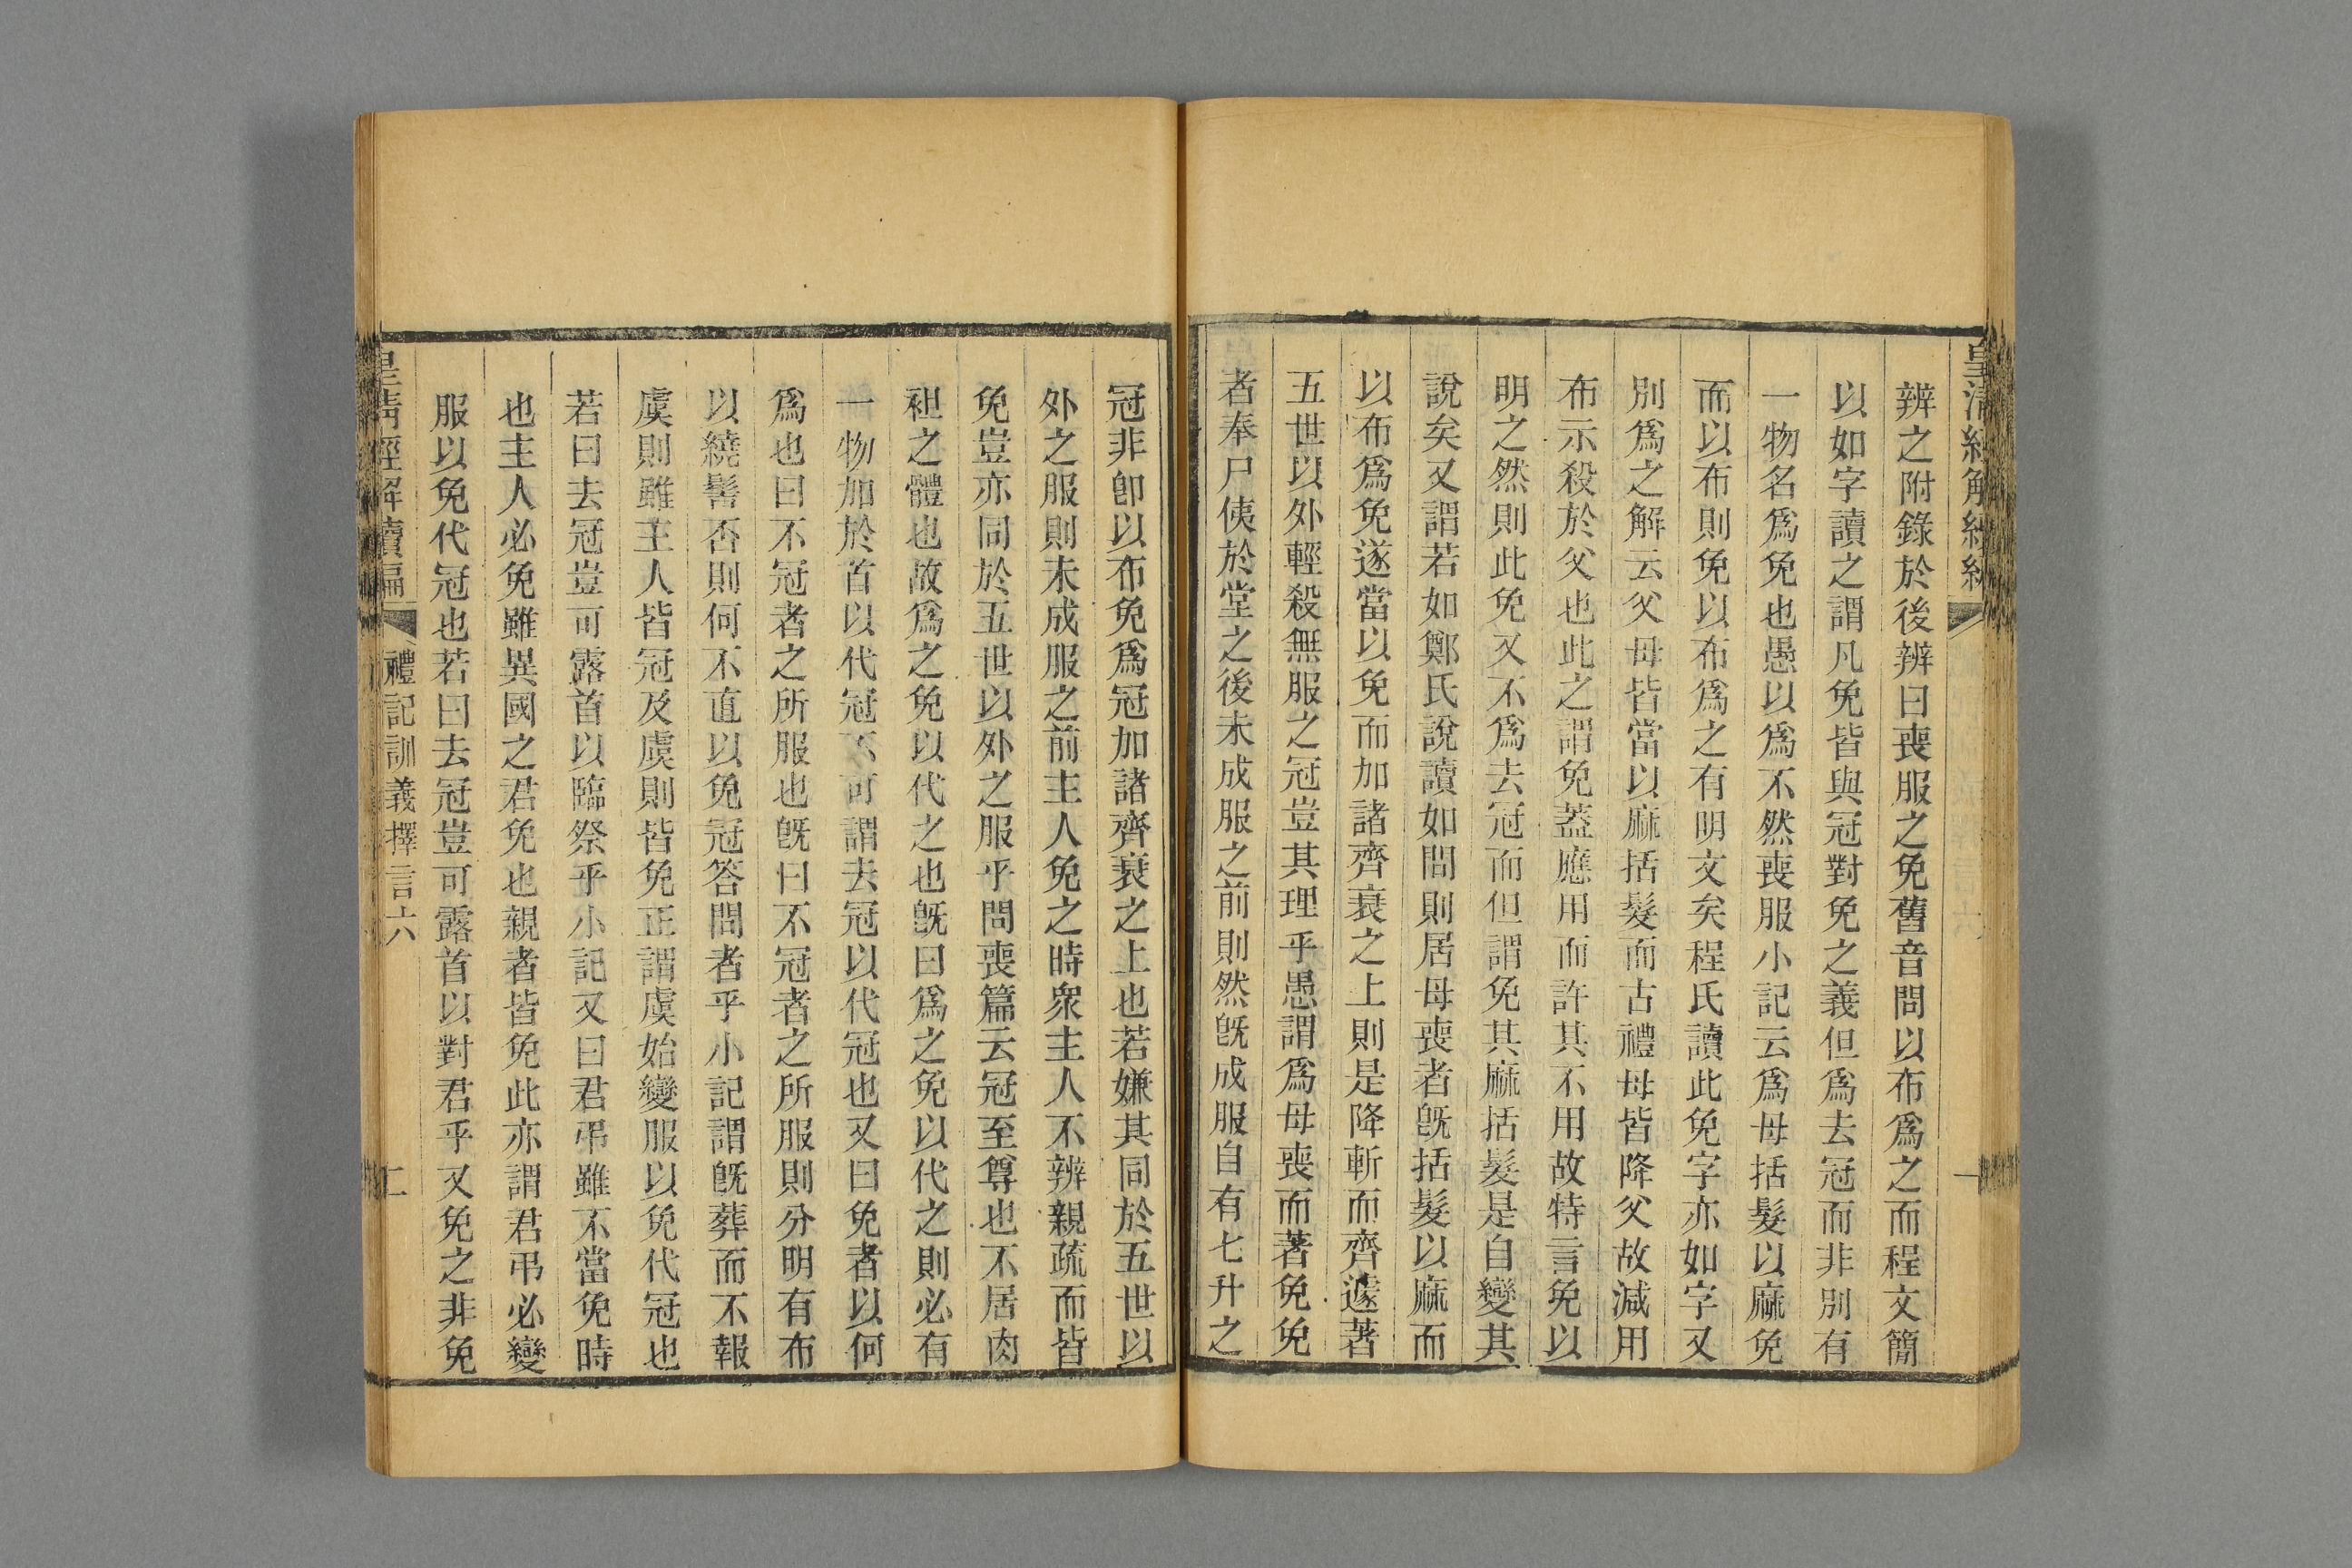 辨之附錄於後辨曰喪服之免舊音問以布爲之而程文簡
以如字讀之謂凡免皆與冠對免之義但爲去冠而非別有
一物名爲免也愚以爲不然喪服小記云爲母括髮以麻免
而以布則免以布爲之有明文矣程氏讀此免字亦如字又
別爲之解云父母皆當以麻括髮而古禮母皆降父故減用
布示殺於父也此之謂免蓋應用而許其不用故特言免以
明之然則此免又不爲去冠而但謂免其麻括髮是自變其
說矣又謂若如鄭氏說讀如問則居母喪者旣括髮以麻而
以布爲免遂當以免而加諸齊衰之上則是降斬而齊遽著
五世以外輕殺無服之冠豈其理乎愚謂爲母喪而著免免
者奉尸侇於堂之後未成服之前則然旣成服自有七升之
冠非卽以布免爲冠加諸齊衰之上也若嫌其同於五世以
外之服則未成服之前主人免之時衆主人不辨親疏而皆
免豈亦同於五世以外之服乎問喪篇云冠至尊也不居肉
袒之體也故爲之免以代之也旣曰爲之免以代之則必有
一物加於首以代冠不可謂去冠以代冠也又曰免者以何
爲也曰不冠者之所服也旣曰不冠者之所服則分明有布
以繞髻否則何不直以免冠答問者乎小記謂旣葬而不報
虞則雖主人皆冠及虞則皆免正謂虞始變服以免代冠也
若曰去冠豈可露首以臨祭乎小記又曰君弔雖不當免時
也主人必免雖異國之君免也親者皆免此亦謂君弔必變
服以免代冠也若曰去冠豈可露首以對君乎又免之非免
皇清經解續編
禮記訓義擇言六
二